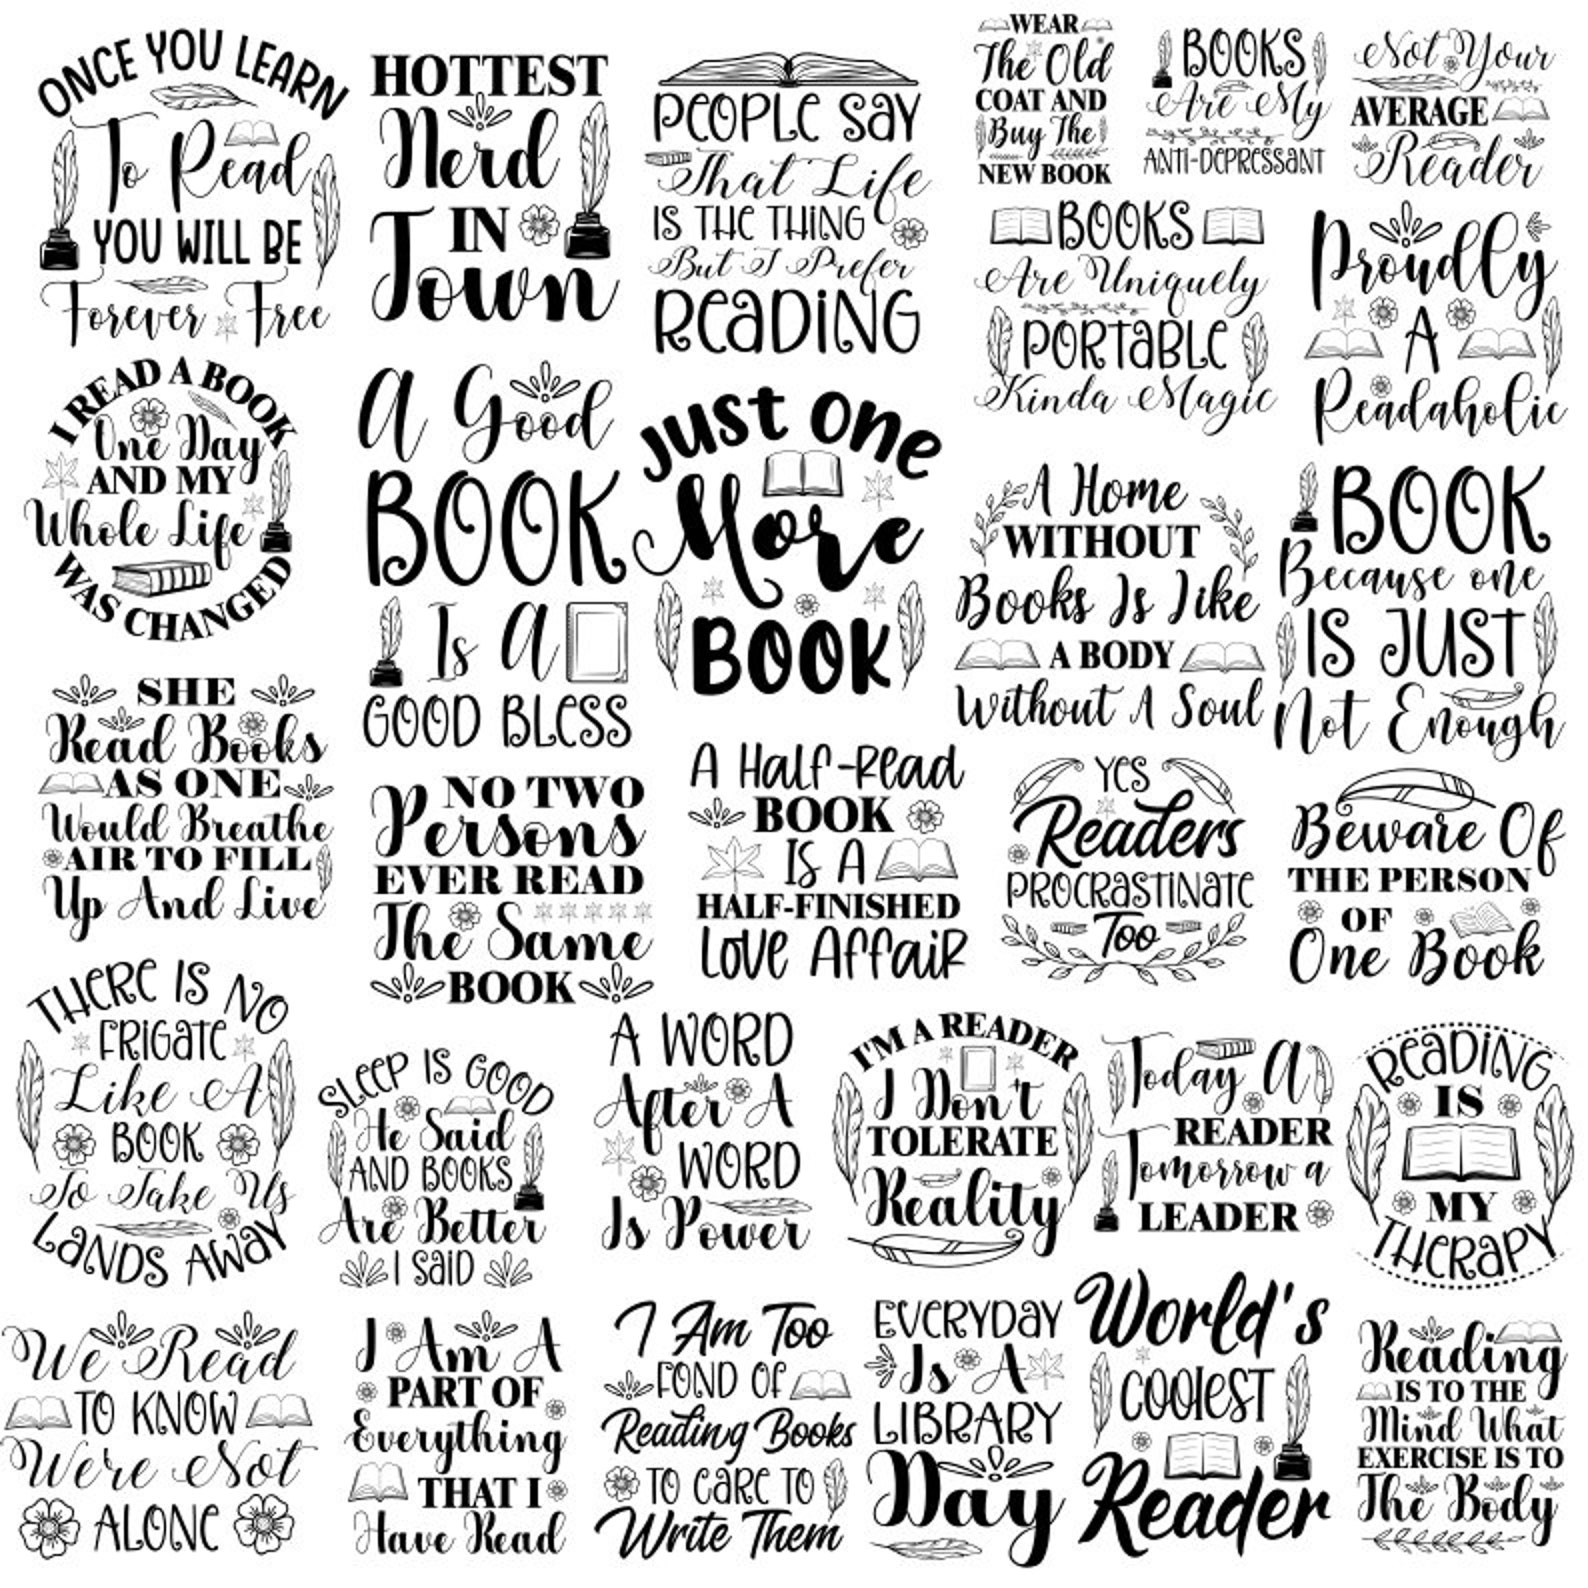 ONCE YOU LEARN
To Read
YOU WILL BE
Forever Free
HOTTEST
Nerd
IN
Town
PEOPLE SAY
That Life
IS THE THING
But I Prefer
READING
WEAR
The Old
COAT AND
Buy The
NEW BOOK
BOOKS
Are My
ANTI-DEPRESSANT
Not Your
AVERAGE
Reader
BOOKS
Are Uniquely
PORTABLE
Kinda Magic
Proudly
A
Readaholic
I READ A BOOK
One Day
AND MY
Whole Life
WAS CHANGED
A Good
BOOK
Is A
GOOD BLESS
Just One
More
BOOK
A Home
WITHOUT
Books Is Like
A BODY
Without A Soul
BOOK
Because one
IS JUST
Not Enough
SHE
Read Books
AS ONE
Would Breathe
AIR TO FILL
Up And Live
NO TWO
Persons
EVER READ
The Same
BOOK
A Half-Read
BOOK
IS A
HALF-FINISHED
Love Affair
YES
Readers
PROCRASTINATE
Too
Beware Of
THE PERSON
OF
One Book
THERE IS NO
FRIGATE
Like A
BOOK
To Take Us
LANDS AWAY
SLEEP IS GOOD
He Said
AND BOOKS
Are Better
I SAID
A WORD
After A
WORD
Is Power
I'M A READER
I Don't
TOLERATE
Reality
Today A
READER
Tomorrow a
LEADER
READING
IS
MY
THERAPY
We Read
TO KNOW
We're Not
ALONE
I Am A
PART OF
Everything
THAT I
Have Read
I Am Too
FOND OF
Reading Books
TO CARE TO
Write Them
EVERYDAY
Is A
LIBRARY
Day
World's
COOlEST
Reader
Reading
IS TO THE
Mind What
EXERCISE IS TO
The Body